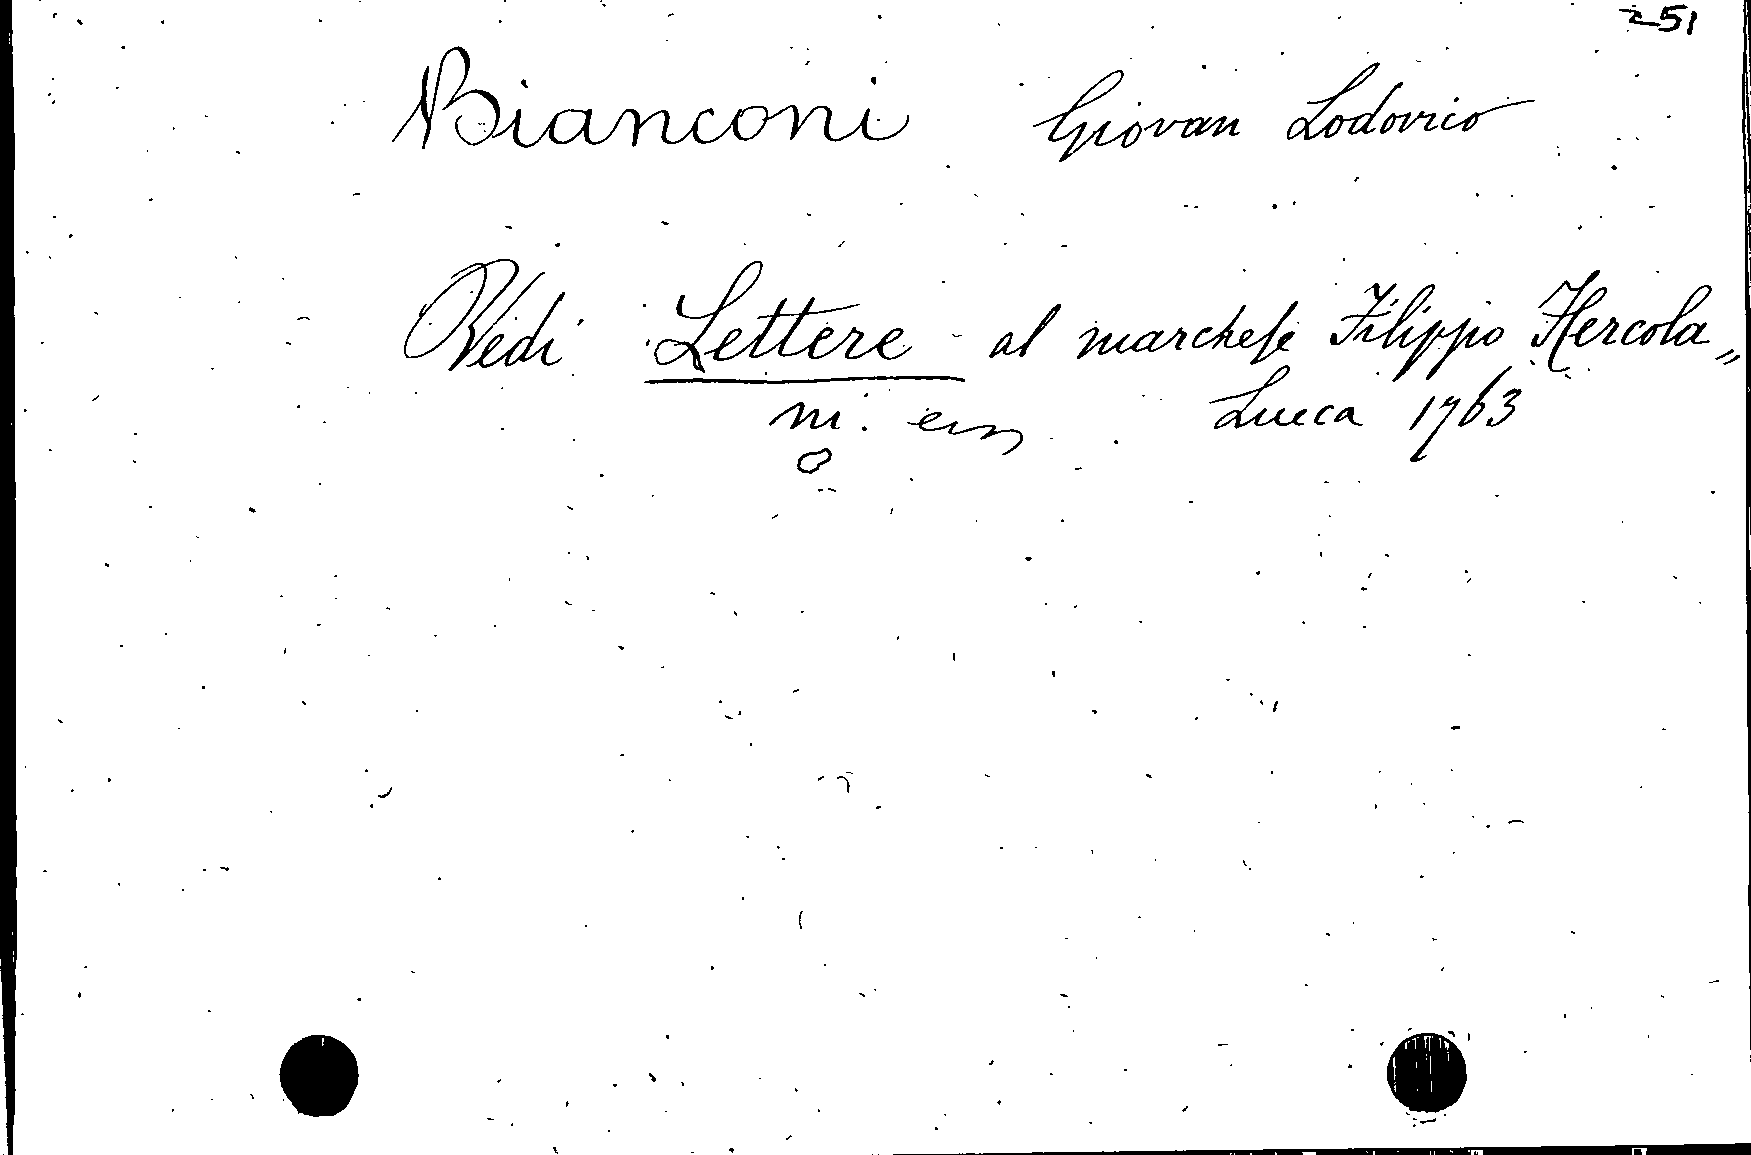 251
Bianconi Giovan Lodovico
Vedi Lettere al marchese Filippo Hercola„
ni. Lucca 1763